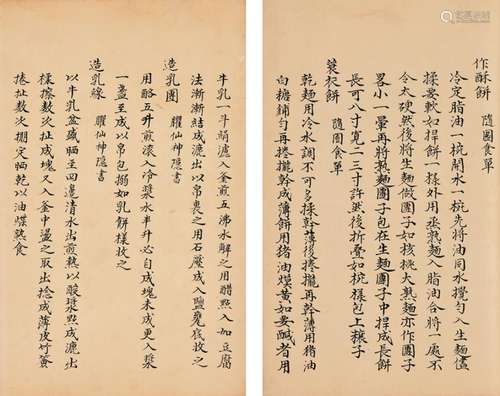 作酥餅 隨園食單
冷定脂油一椀開水一椀先將油同水攪勻入生麵儘
揉要軟如捍餅一樣外用蒸熟麵入脂油合將一處不
令太硬然後將生麵做團子如核桃大熟麵亦作團子
畧小一暈再將熟麵團子包在生麵團子中捍成長餅
長可八寸寬二三寸許然後折疊如椀樣包上穰子
蓑衣餅 隨園食單
乾麵用冷水調不可多揉幹薄後捲攏再幹薄用猪油
白糖鋪勻再捲攏幹成薄餅用猪油煠黃如要鹹者用
牛乳一斗絹濾入釜煎五沸水解之用醋點入如豆腐
法漸漸結成漉出以帛裹之用石壓成入鹽甕底收之
造乳團 臞仙神隱書
用酪五升煎滾入冷漿水半升必自成塊未成更入漿
一盞至成以帛包搦如乳餅樣收之
造乳線 臞仙神隱書
以牛乳盆盛晒至四邊清水出煎熱以酸漿點成漉出
揉擦數次扯成塊又入釜中盪之取出捻成薄皮竹籤
捲扯數次掤定晒乾以油煠熟食